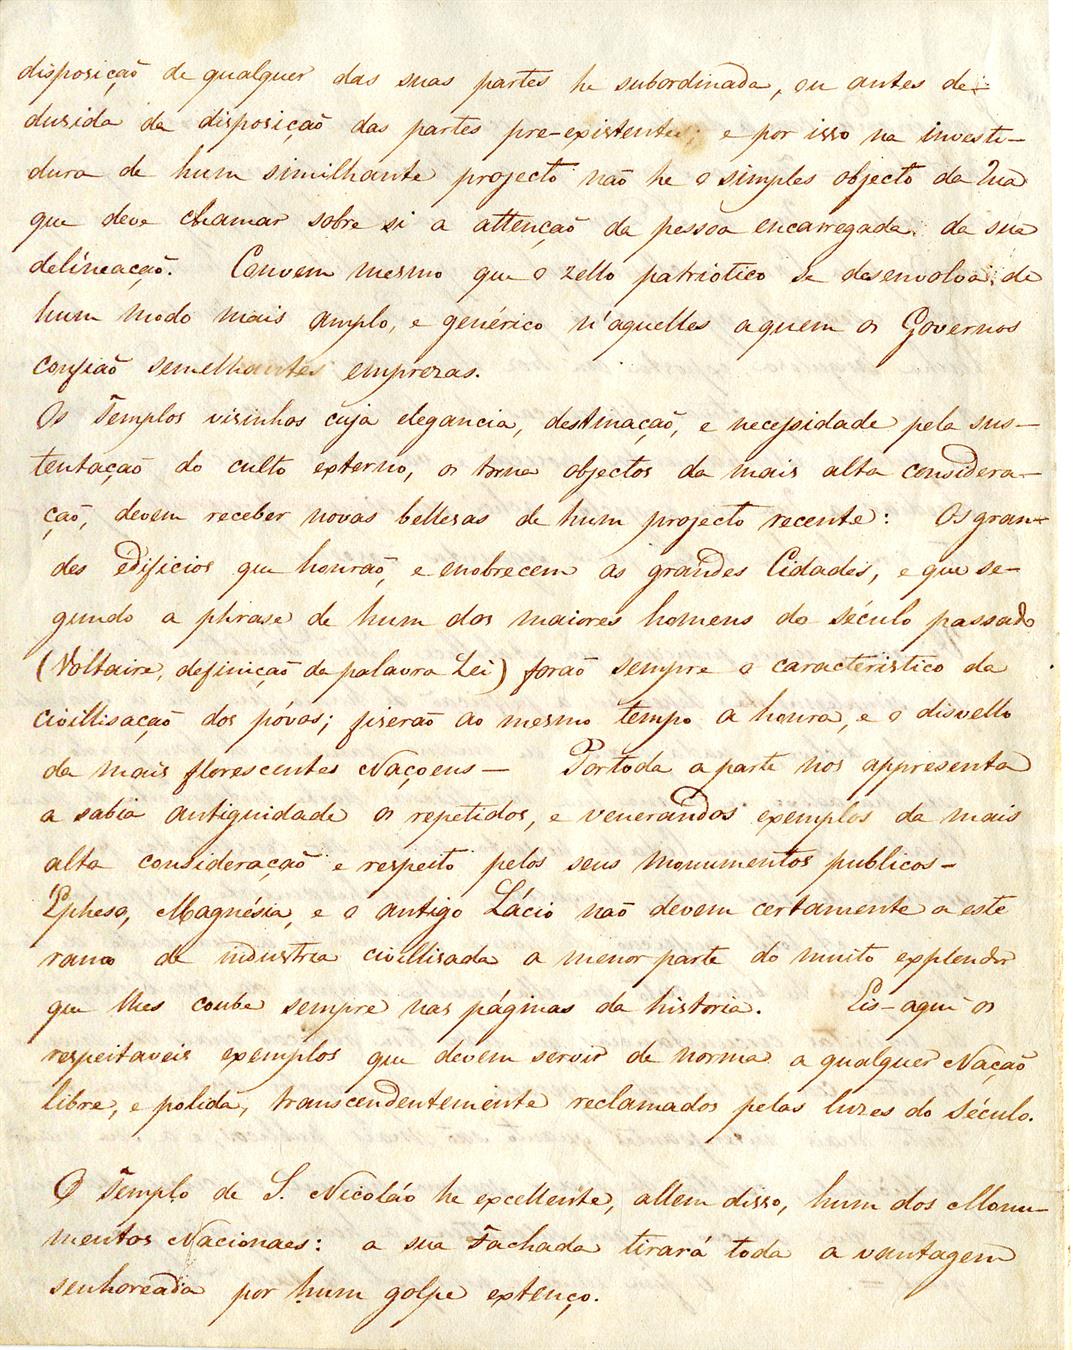 disposição de qualquer das suas partes he subordinada, ou antes de-
dusida da disposição das partes pre-existentes; e por isso na investi-
dura de hum similhante projecto não he o simples objecto da Rua
que deve chamar sobre si a attenção da pessoa encarregada da sua
delineação. Convem mesmo que o zello patriotico se desenvolva de
hum modo mais amplo, e genérico n'aquelles aquem os Governos
confião semelhantes emprezas.
Os Templos visinhos cuja elegancia, destinação, e necessidade pela sus-
tentação do culto externo, os torna objectos da mais alta considera-
ção, devem receber novas bellesas de hum projecto recente: Os gran-
des edificios que honrão, e enobrecem as grandes Cidades, e que se-
gundo a phrase de hum dos maiores homens do século passado
(Voltaire, definição da palavra Lei) forão sempre o caracteristico da
civillisação dos póvos; fiserão ao mesmo tempo a honra, e o disvello
da mais florescentes Naçoens- Portoda a parte nos appresenta
a sabia antiguidade os repetidos, e venerandos exemplos da mais
alta consideração e respeito pelos seus monumentos publicos-
Epheso, Magnésia, e o antigo Lácio não devem certamente a este
ramo de industria civillisada a menor parte do muito explendor
que lhes coube sempre nas páginas da historia. Eis-aqui os
respeitaveis exemplos que devem servir de norma a qualquer Nação
libre, e polida, transcendentemente reclamados pelas luzes do século.
O Templo de S. Nicoláo he excellente, allem disso, hum dos Monu-
mentos Nacionaes: a sua Fachada tirará toda a vantagem
senhoreada por hum golpe extenço.